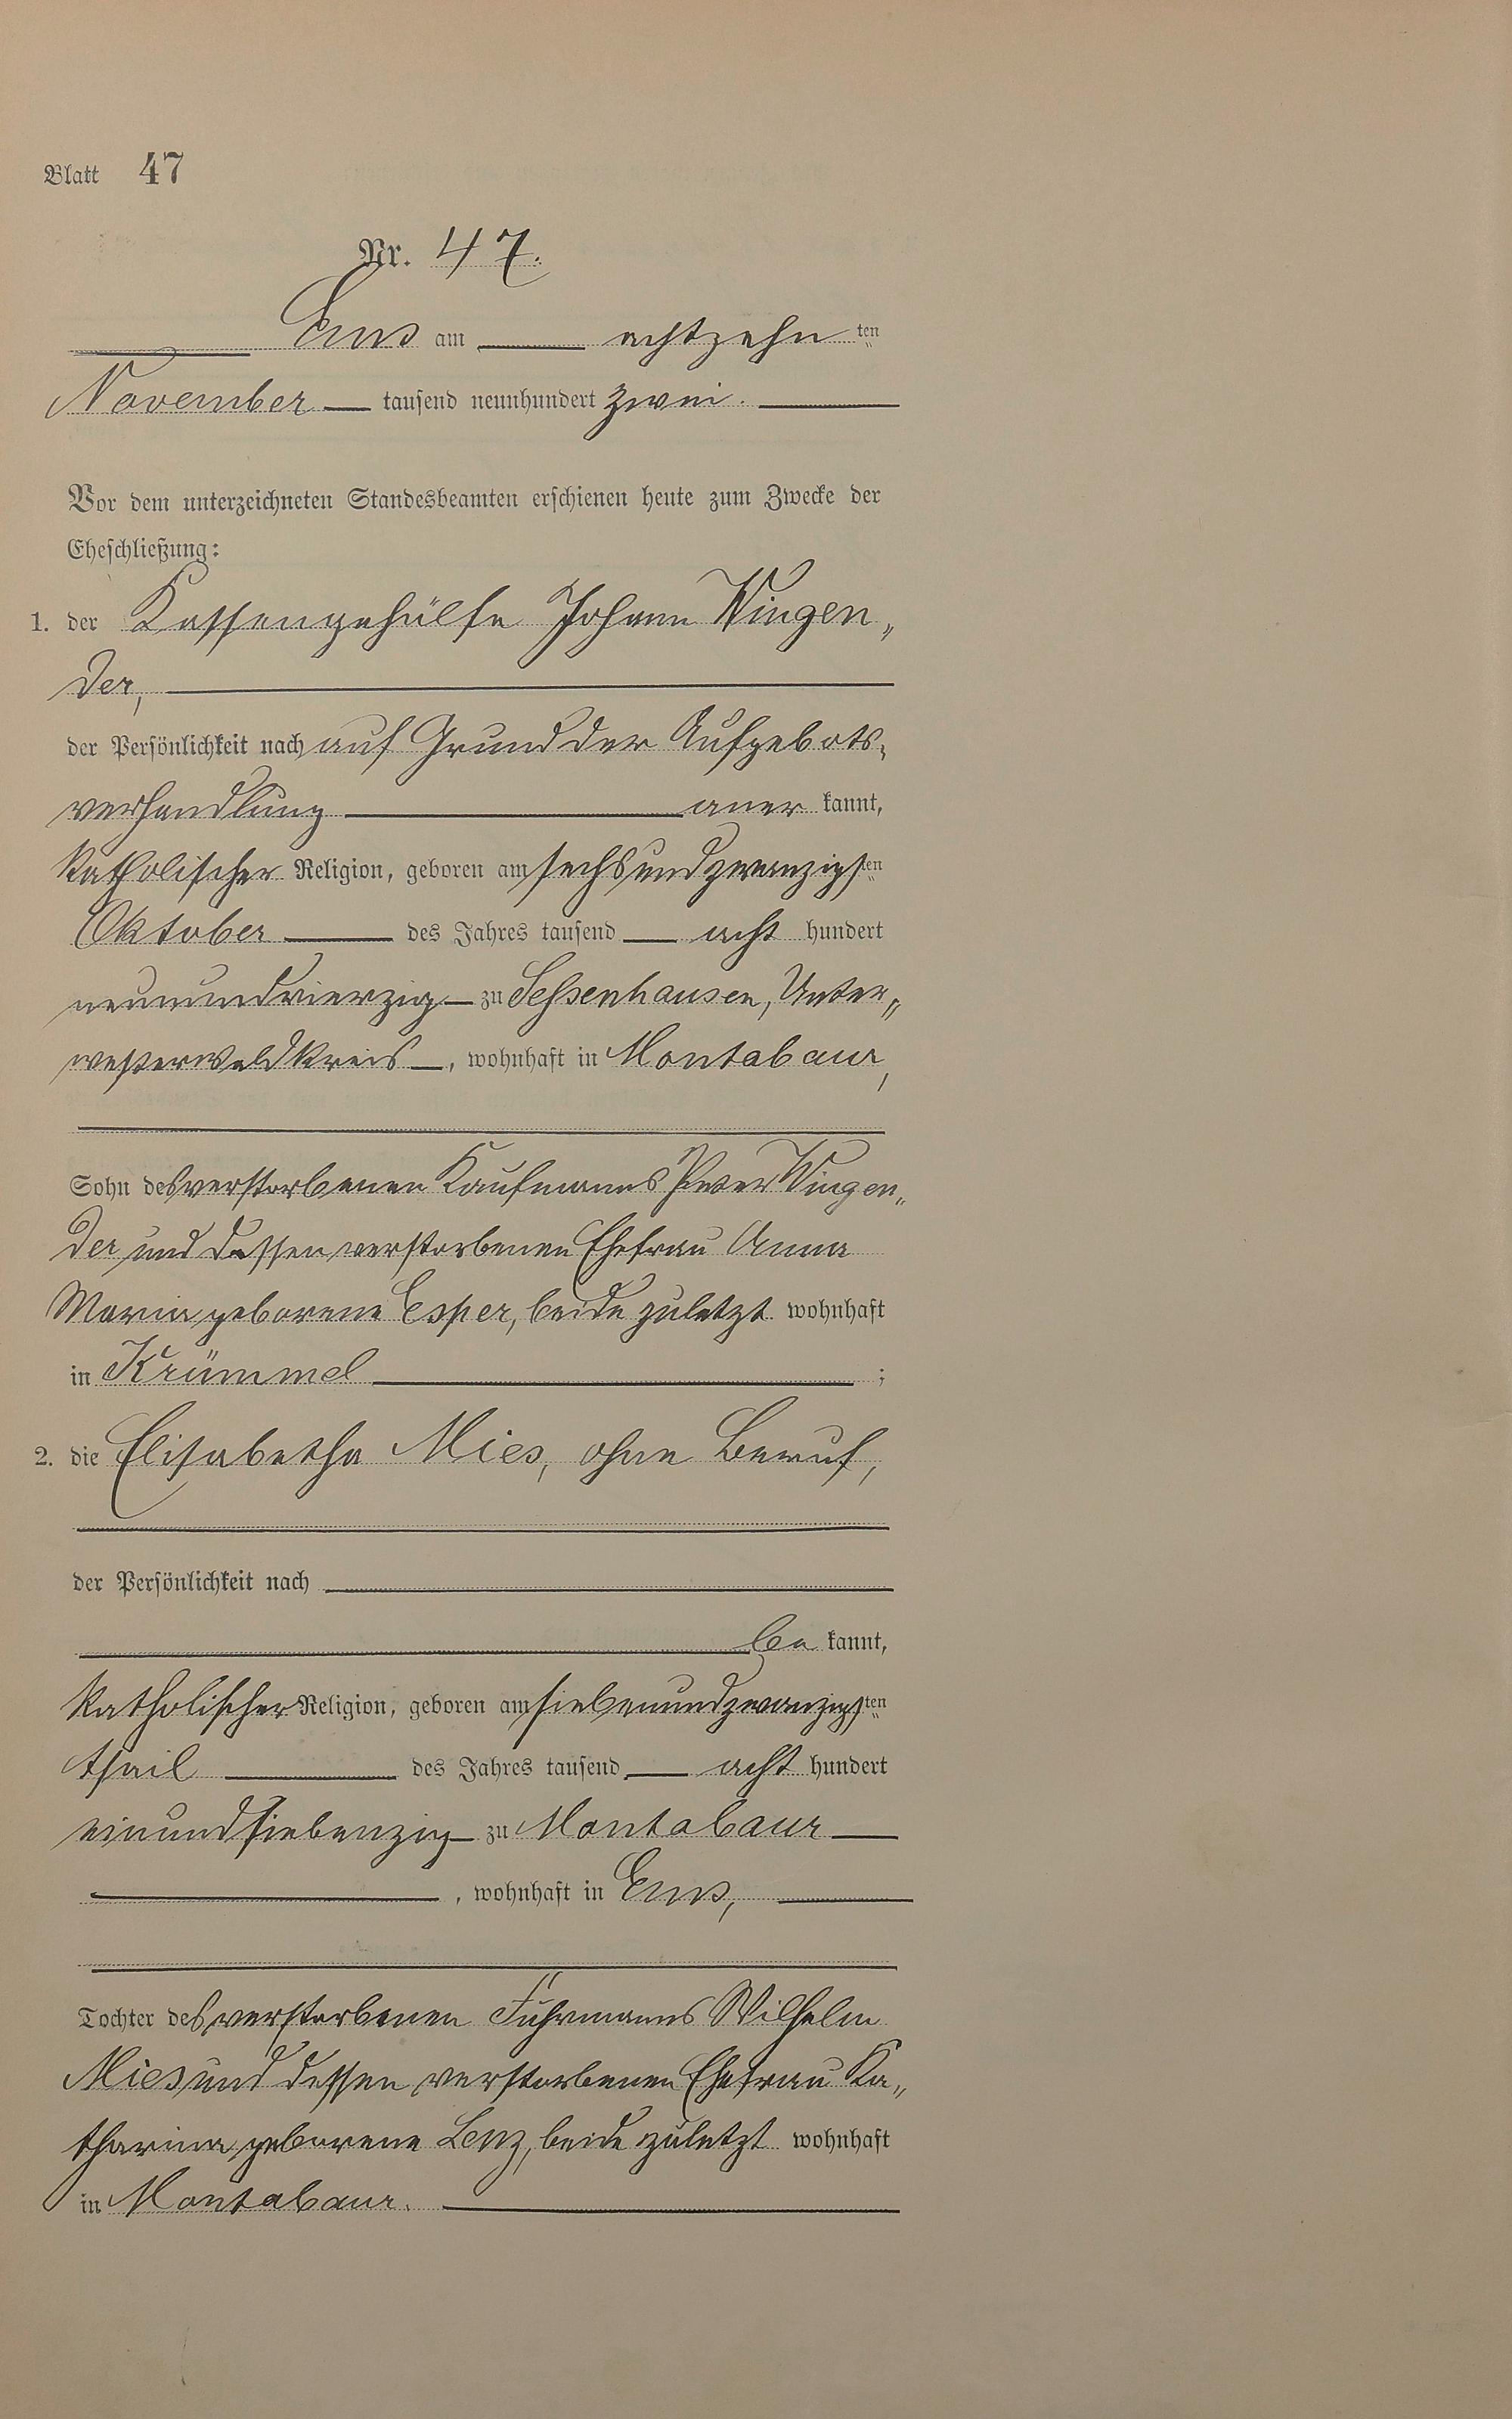 Blatt 47
Nr. 47.
Ems am achtzehn ten
November tausend neunhundert zwei.
Vor dem unterzeichneten Standesbeamten erschienen heute zum Zwecke der
Eheschließung:
1. der Kassengehülfe Johann Wingen„
der,
der Persönlichkeit nach auf Grund der Aufgebots„
verhandlung aner kannt,
katholischer Religion, geboren am sechsundzwanzigsten
Oktober des Jahres tausend acht hundert
neunundvierzig zu Sessenhausen, Unter„
westerwaldkreis, wohnhaft in Montabaur,
Sohn des verstorbenen Kaufmanns Peter Wingen„
der und dessen verstorbenen Ehefrau Anna
Maria geborene Esper, beide zuletzt wohnhaft
in Krümmel ;
2. die Elisabetha Mies, ohne Beruf,
der Persönlichkeit nach
be kannt,
katholischer Religion, geboren am siebenundzwanzigsten
des Jahres tausend acht hundert
einundsiebenzig zu Montabaur
, wohnhaft in Ems,
Tochter des verstorbenen Fuhrmanns Wilhelm
Mies und dessen verstorbenen Ehefrau Ka„
tharina geborene Lenz, beide zuletzt wohnhaft
in Montabaur.